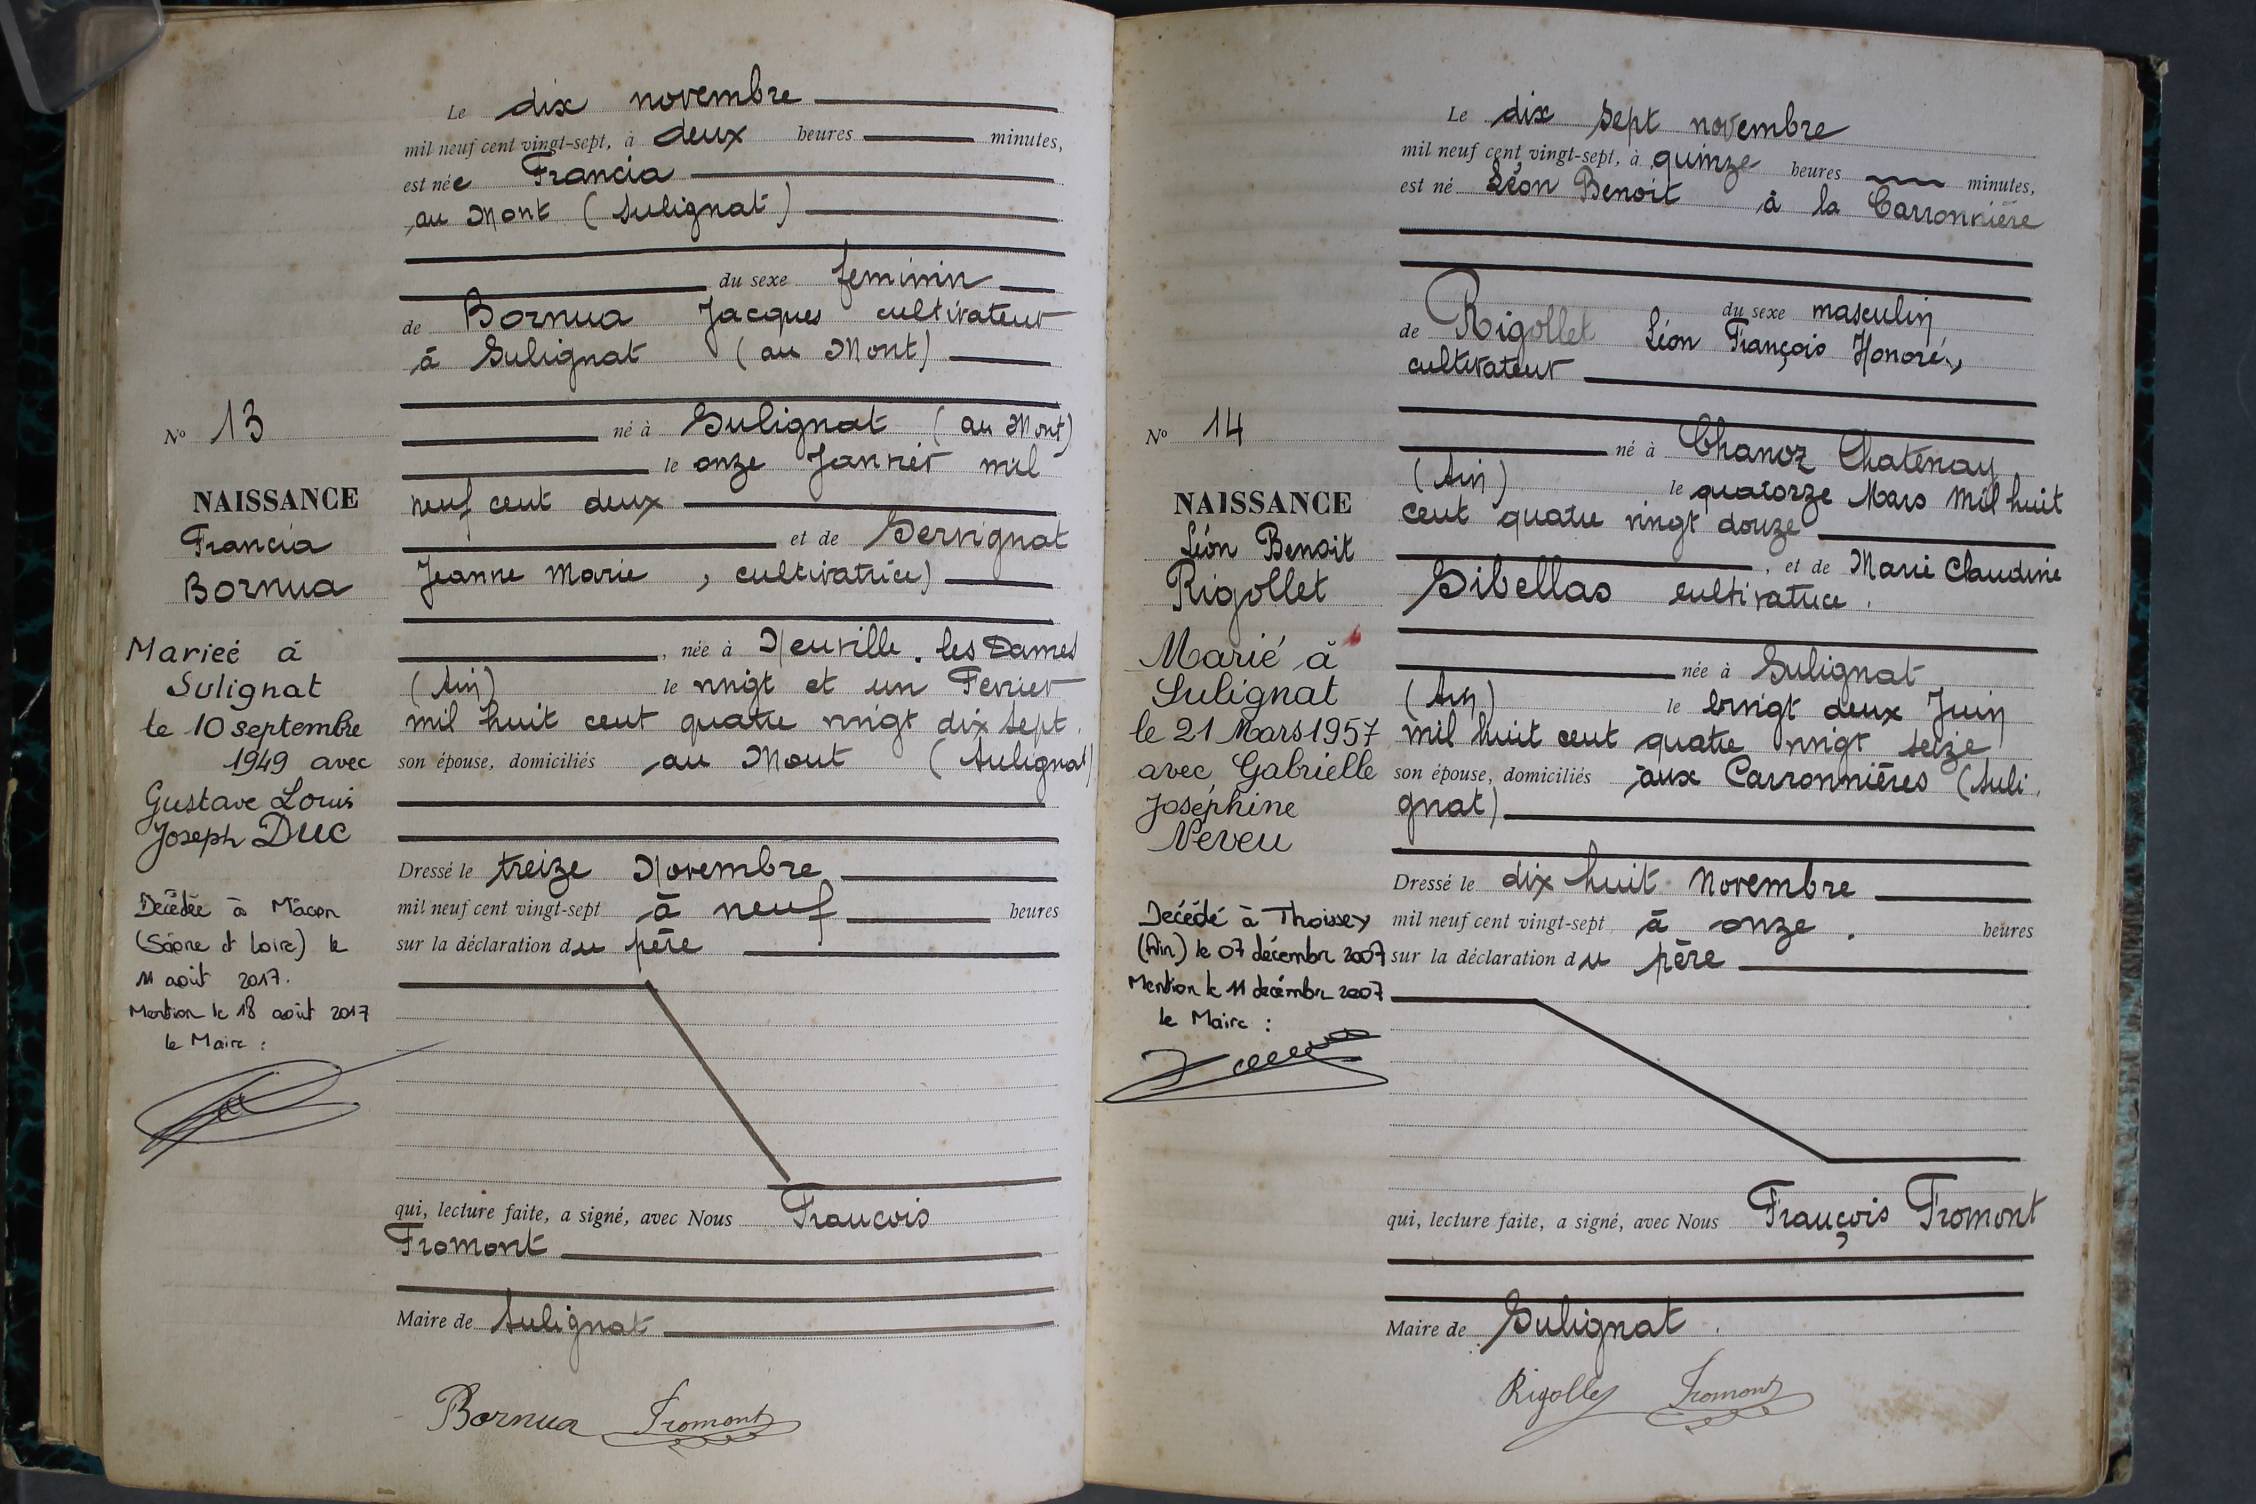 Le dix novembre
mil neuf cent vingt-sept, à deux heures minutes,
est née Francia
au Mont (Sulignat)
du sexe feminin
de Bornua Jacques cultivateur
à Sulignat (au Mont)
né à Sulignat (au Mont)
le onze Janvier mil
neuf cent deux
et de Servignat
Jeanne Marie, cultivatrice)
, née à Neuville. les Dames
(Ain) le vingt et un Fevrier
mil huit cent quatre vingt dix sept.
son épouse, domiciliés au Mont (Sulignat)
Dressé le treize Novembre
mil neuf cent vingt-sept à neuf heures
sur la déclaration du père
qui, lecture faite, a signé, avec Nous François
Fromont
Maire de Sulignat
Bornua Fromont
N° 13
NAISSANCE
Francia
Bornua
Mariée à
Sulignat
le 10 septembre
1949 avec
Gustave Louis
Joseph DUC
Décédée à Mâcon
(Saône et Loire) le
11 août 2017.
Mention le 18 août 2017
le Maire :
Le dix sept novembre
mil neuf cent vingt-sept, à quinze heures minutes,
est né Léon Benoit à la Carronnière
du sexe masculin
de Rigollet Léon François Honoré,
cultivateur
né à Chanoz Chatenay
(Ain) le quatorze Mars mil huit
cent quatre vingt douze
, et de Marie Claudine
Sibellas cultivatrice.
née à Sulignat
(Ain) le vingt deux Juin
mil huit cent quatre vingt seize
son épouse, domiciliés aux Carronnières (Suli.
gnat)
Dressé le dix huit Novembre
mil neuf cent vingt-sept à onze. heures
sur la déclaration du père
qui, lecture faite, a signé, avec Nous François Fromont
Maire de Sulignat.
Rigollet Fromont
N° 14
NAISSANCE
Léon Benoit
Rigollet
Marié à
Sulignat
le 21 Mars 1957
avec Gabrielle
Joséphine
Neveu
Décédé à Thoissey
(Ain) le 07 décembre 2007
Mention le 11 décembre 2007
le Maire :